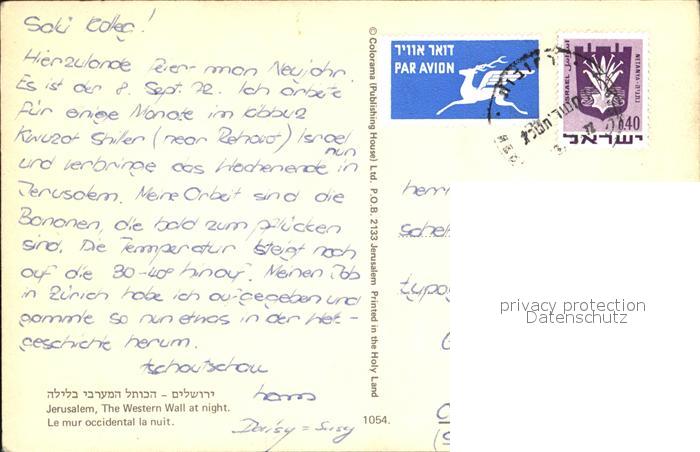 Sali Kolleg!
Hierzulande feiert man Neujahr.
Es ist der 8. Sept. 72. Ich arbeite
für einige Monate im Kibbuz
Kwuzat Shiller (near Rehovot) Israel
und verbringe nun das Wochenende in
Jerusalem. Meine Arbeit sind die
Bananen, die bald zum pflücken
sind. Die Temperatur steigt noch
auf die 30-40° hinauf. Meinen Job
in Zürich habe ich aufgegeben und
gammle so nun etwas in der Welt-
geschichte herum.
tschautschau
hans
Daisy = Susy
ירושלים - הכותל המערבי בלילה
Jerusalem, The Western Wall at night.
Le mur occidental la nuit.
1054.
© Colorama (Publishing House) Ltd. P.O.B. 2133 Jerusalem Printed in the Holy Land
דואר אוויר
PAR AVION
ISRAEL
NETANYA-נתניה
0.40
ישראל
henri
typog
privacy protection
Datenschutz